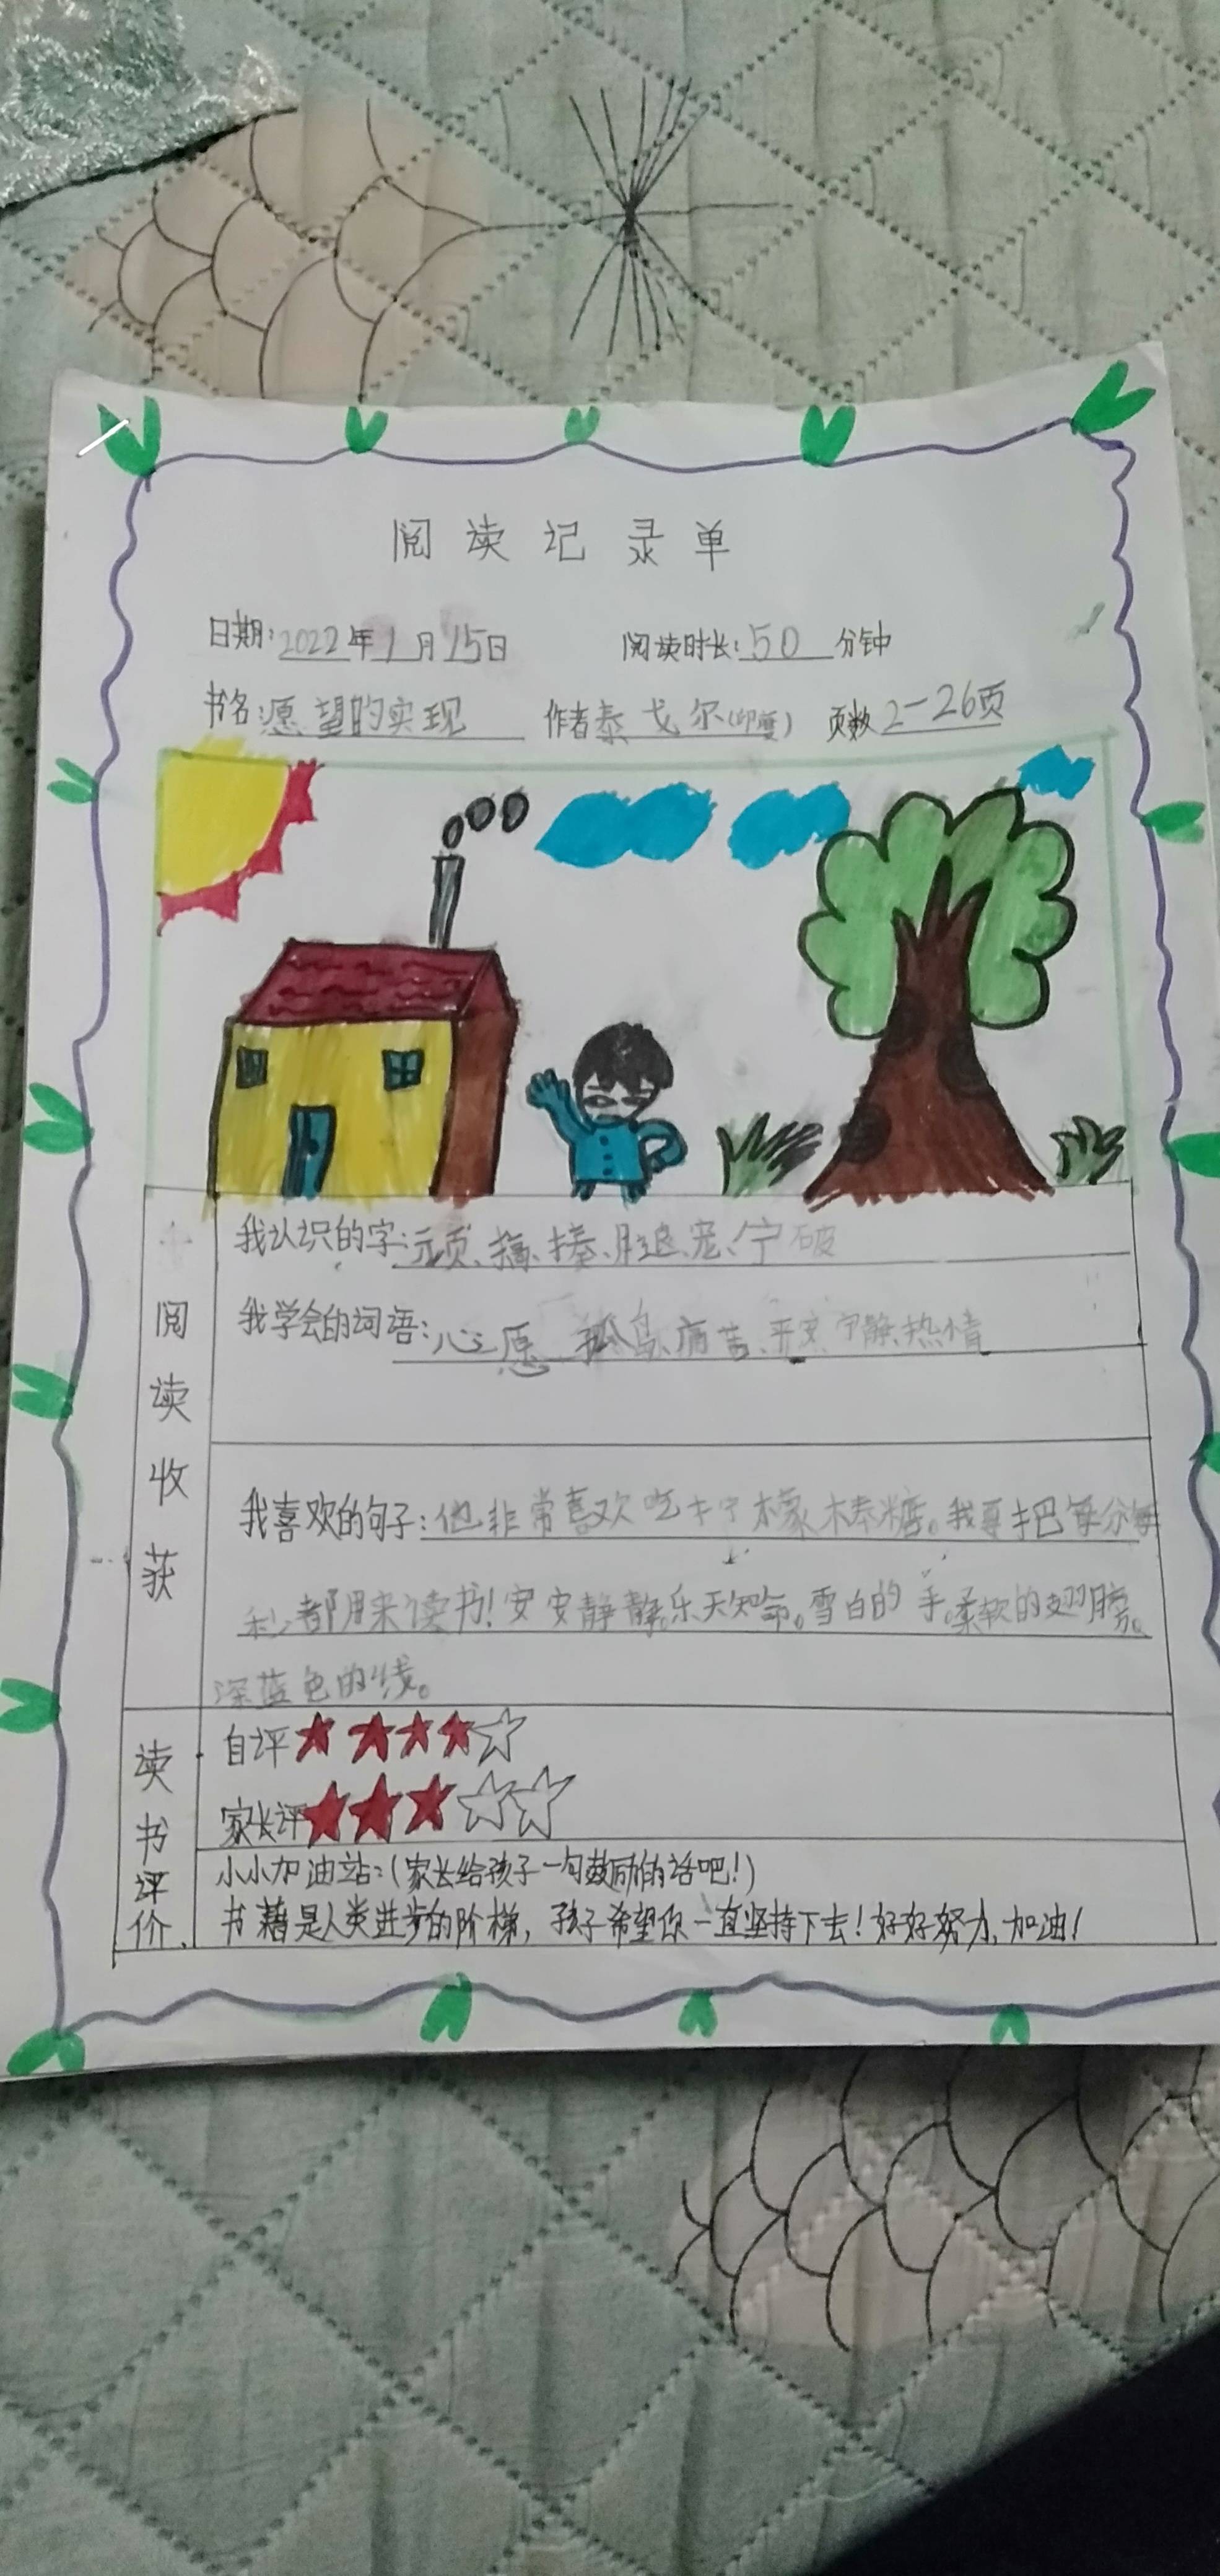 阅读记录单
日期:2022年1月15日 阅读时长:50分钟
书名:愿望的实现 作者泰戈尔(印度) 页数2-26页
阅读收获
我认识的字:顽、搞、捧、腿、宠、宁 破
我学会的词语:心愿 孤鸟、痛苦、平安、宁静、热情
我喜欢的句子:他非常喜欢吃柠檬棒糖。我要把每分每
秒都用来读书!安安静静。乐天知命。雪白的手。柔软的翅膀。
深蓝色的线。
读书评价
自评★★★★☆
家长评★★★☆☆
小小加油站:(家长给孩子一句鼓励的话吧!)
书藉是人类进步的阶梯,孩子希望你一直坚持下去!好好努力,加油!